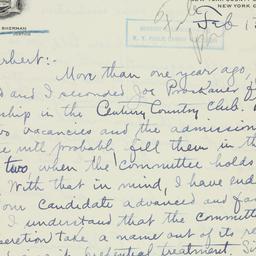 NEW YORK COUNTY
NEW YORK
SHERMAN
JUSTICE
Feb 1
N. Y. PUBLIC
erbert:-
More than one year ago,
d and I seconded Joe Proskauer f
ship in the Century Country Club.
two vacancies and the admission
ee will probably fill them in th
two, when the committee holds
With that in mind, I have end
our candidate advanced and fa
I understand that the committe
scretion take a name out of its re
preferential treatment. Si